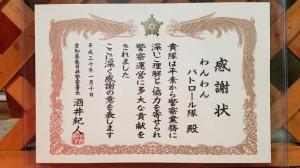 感謝状
わんわん
パトロール隊 殿
貴隊は平素から警察業務に
深いご理解と協力を寄せられ
警察運営に多大な貢献を
されました
ここに深く感謝の意を表します
平成三十年一月十日
愛知県春日井警察署長
酒井紀人